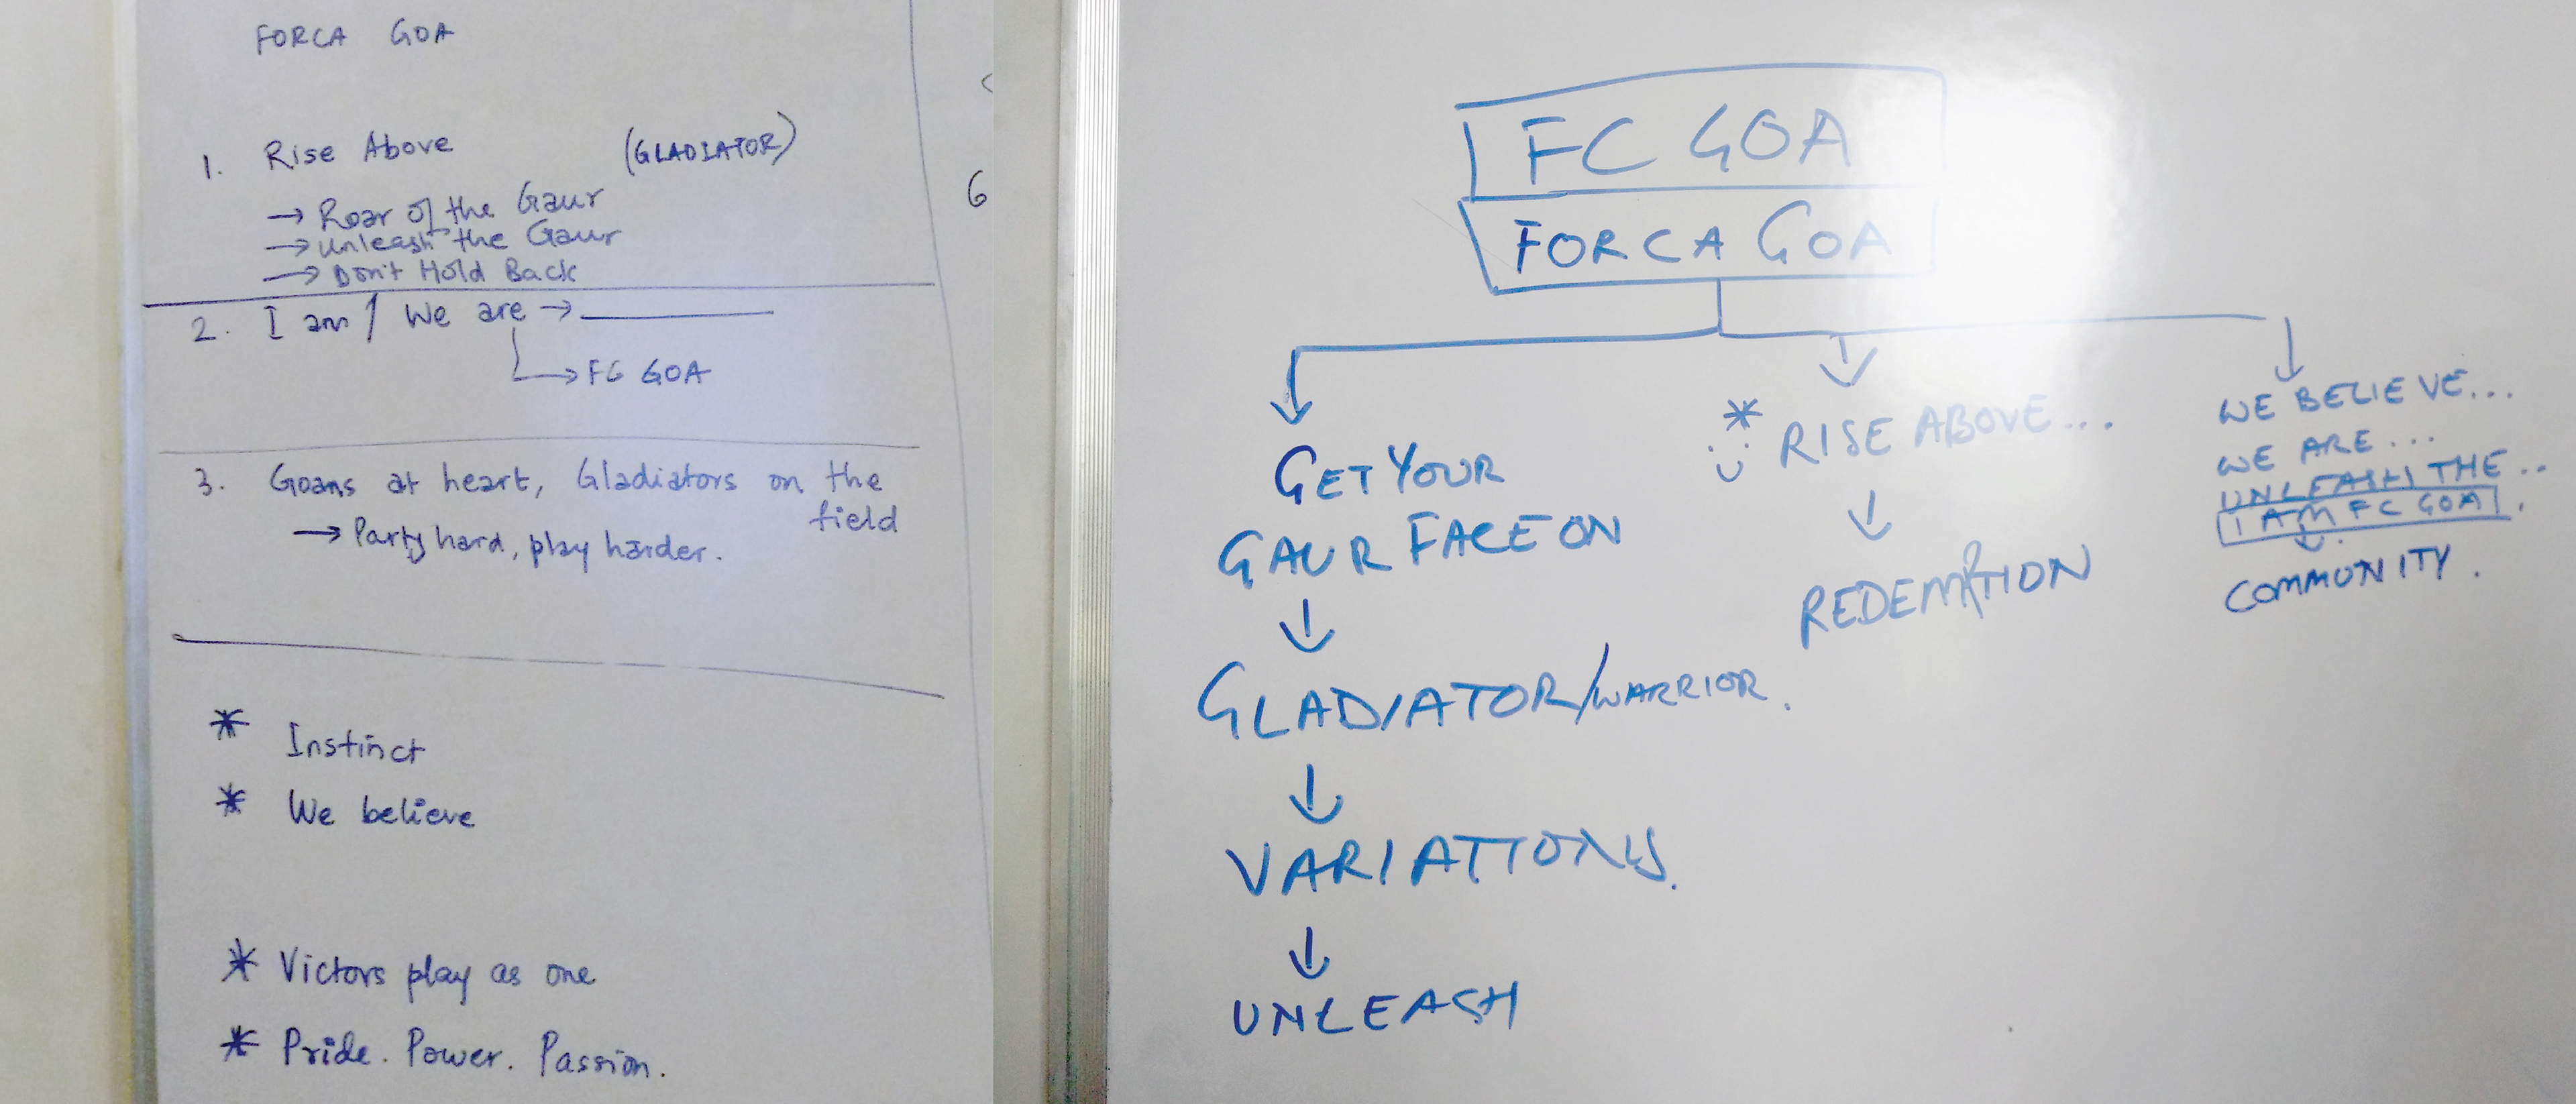 FORCA GOA
1. Rise Above (GLADIATOR)
→ Roar of the Gaur
→ Unleash the Gaur
→ Don't Hold Back
2. I am / We are → ________
→ FC GOA
3. Goans at heart, Gladiators on the
field
→ Party hard, play harder.
* Instinct
* We believe
* Victors play as one
* Pride. Power. Passion.
6
FC GOA
FORCA GOA
GET YOUR
GAUR FACE ON
↓
GLADIATOR/WARRIOR.
↓
VARIATIONS.
↓
UNLEASH
* RISE ABOVE...
↓
REDEMPTION
WE BELIEVE...
WE ARE...
UNLEASH THE..
I AM FC GOA.
↓
COMMUNITY.